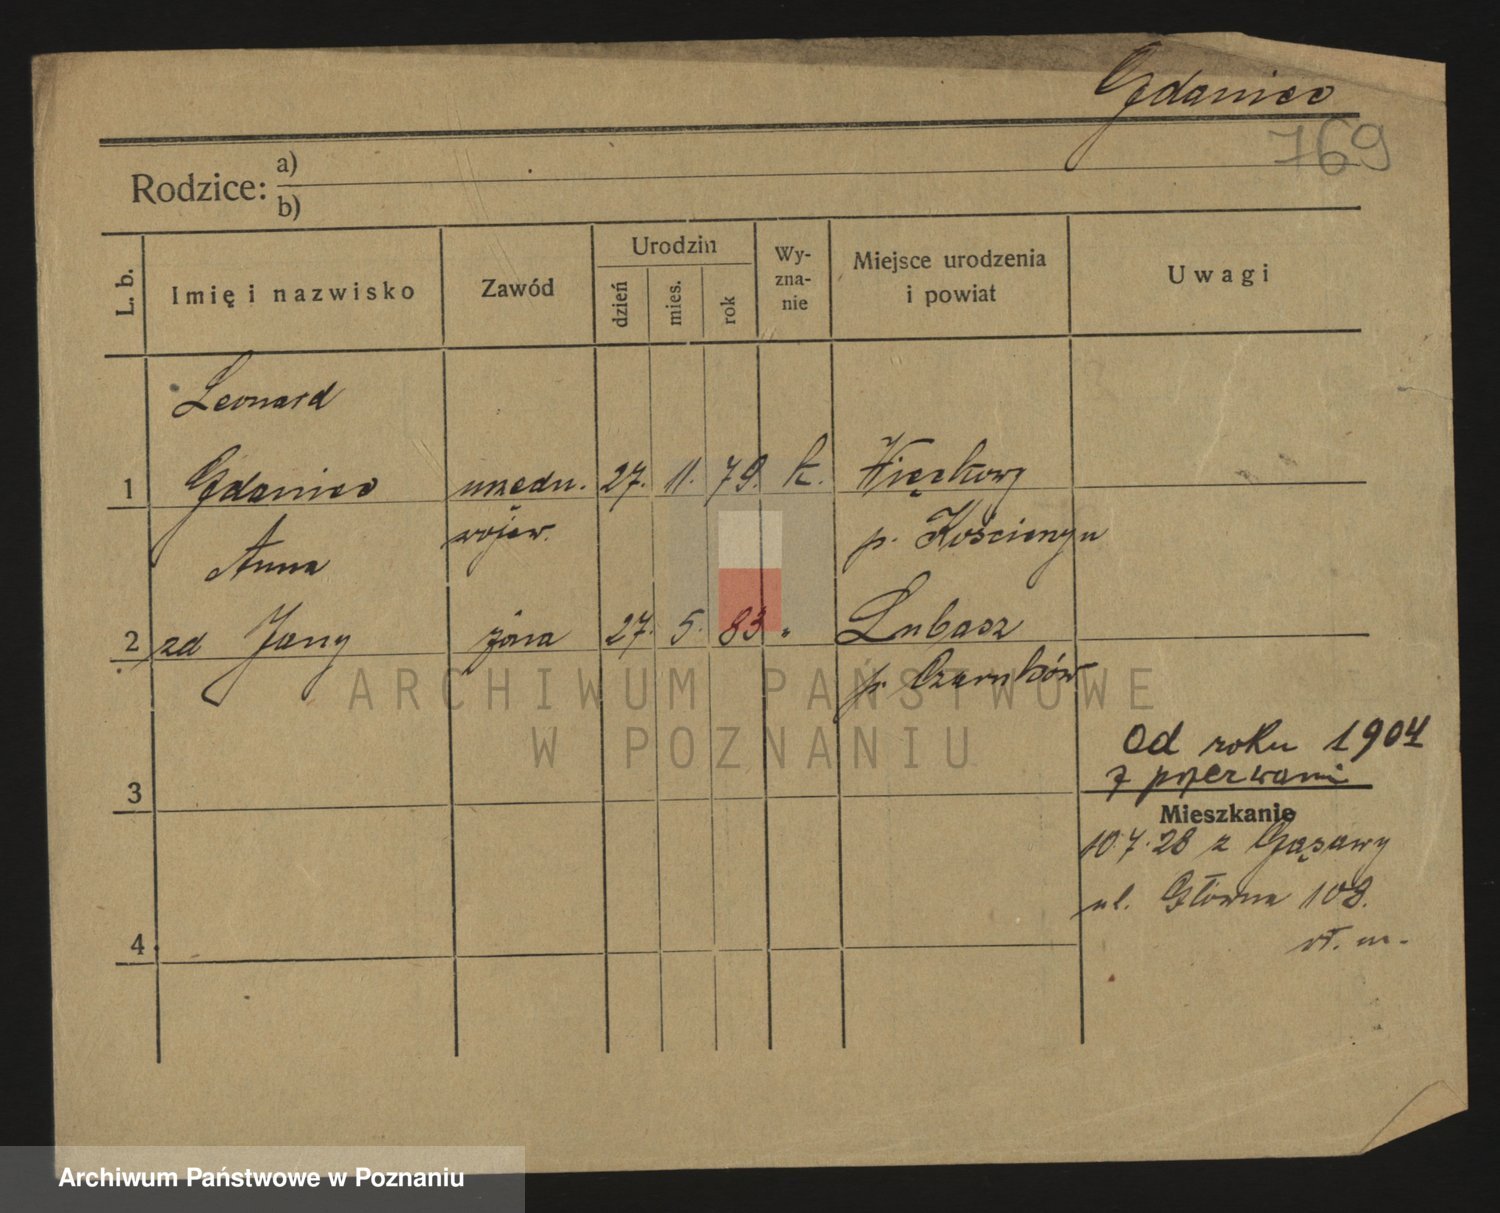 Gdaniec
769
Rodzice: a)
b)
L. b.
Imię i nazwisko
Zawód
Urodzin
dzień
mies.
rok
Wy-
zna-
nie
Miejsce urodzenia
i powiat
Uwagi
Leonard
1 Gdaniec urzędn. 27. 11. 79. k.
wojew. p.
Anna
2 zd Jany żona 27. 5. 83 " Lubasz
p. Czarnków
ARCHIWUM PAŃSTWOWE
W POZNANIU
Od roku 1904
z przerwami
3
Mieszkanie
10.7.28 z Gąsawy
ul. Główna 108.
4.
wł. m.
Archiwum Państwowe w Poznaniu